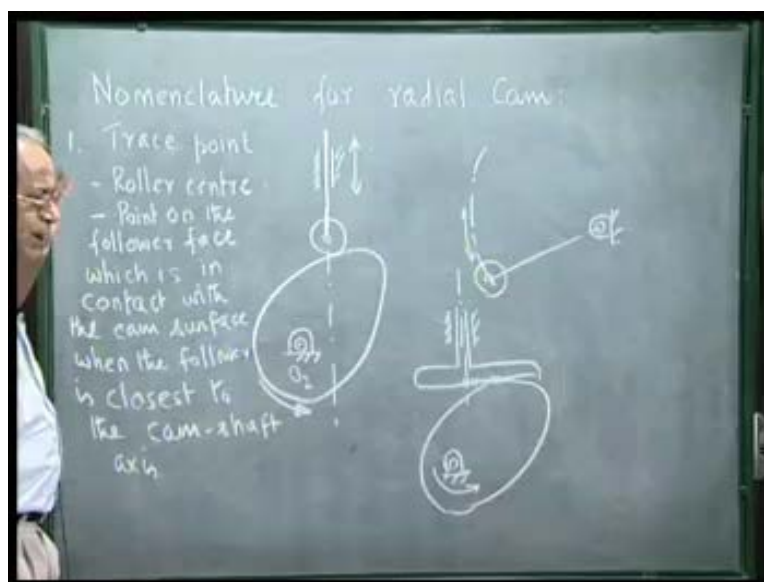 Nomenclature for radial Cam:
1. Trace point
- Roller centre
- Point on the
follower face
which is in
contact with
the cam surface
when the follower
is closest to
the cam-shaft
axis
O2